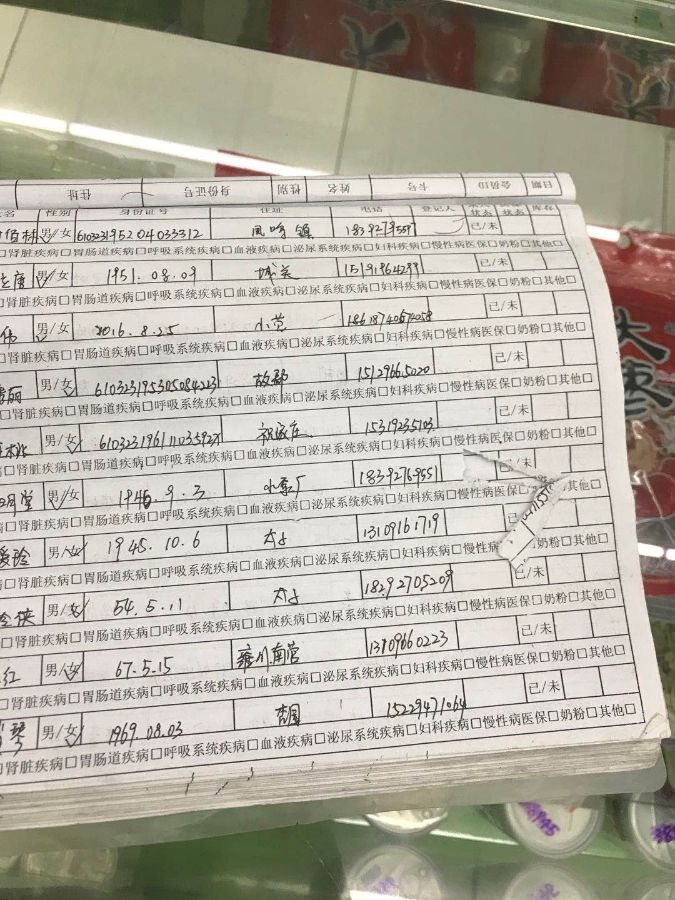 日期 会员ID 卡号 姓名 性别 身份证号 住址
性别 身份证号 住址 电话 登记人 状态 状态 库存
男/女 610323195204033312 凤鸣镇 已/未
□肾脏疾病□胃肠道疾病□呼吸系统疾病□血液疾病□泌尿系统疾病□妇科疾病□慢性病医保□奶粉□其他□
男/女 1951.08.09 城关 已/未
□肾脏疾病□胃肠道疾病□呼吸系统疾病□血液疾病□泌尿系统疾病□妇科疾病□慢性病医保□奶粉□其他□
伟 男/女 2016.8.25 小营 已/未
□肾脏疾病□胃肠道疾病□呼吸系统疾病□血液疾病□泌尿系统疾病□妇科疾病□慢性病医保□奶粉□其他□
丽 男/女 610323195305084223 故郡 15129665020 已/未
□肾脏疾病□胃肠道疾病□呼吸系统疾病□血液疾病□泌尿系统疾病□妇科疾病□慢性病医保□奶粉□其他□
男/女 祝家庄 15319235103 已/未
□肾脏疾病□胃肠道疾病□呼吸系统疾病□血液疾病□泌尿系统疾病□妇科疾病□慢性病医保□奶粉□其他□
男/女 1946.9.3 18392769551 已/未
□肾脏疾病□胃肠道疾病□呼吸系统疾病□血液疾病□泌尿系统疾病□妇科疾病□慢性病医保□其他□
男/女 1945.10.6 13109161719
□肾脏疾病□胃肠道疾病□呼吸系统疾病□血液疾病□泌尿系统疾病□妇科疾病□慢性病 奶粉□其他□
男/女 54.5.11 18292705209 已/未
□肾脏疾病□胃肠道疾病□呼吸系统疾病□血液疾病□泌尿系统疾病□妇科疾病□慢性病医保□奶粉□其他□
红 男/女 67.5.15 雍川南营 已/未
□肾脏疾病□胃肠道疾病□呼吸系统疾病□血液疾病□泌尿系统疾病□妇科疾病□慢性病医保□奶粉□其他□
琴 男/女 1969.08.03 15229471064 已/未
□肾脏疾病□胃肠道疾病□呼吸系统疾病□血液疾病□泌尿系统疾病□妇科疾病□慢性病医保□奶粉□其他□
大枣